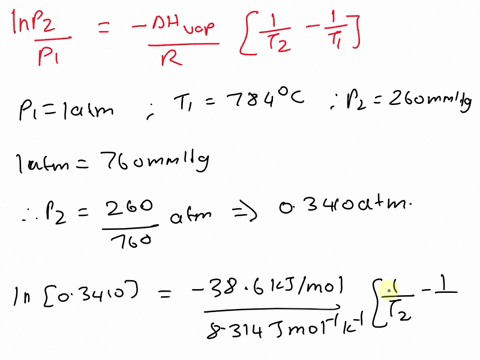 ln P2 / P1 = -ΔHvap / R [1/T2 - 1/T1]
P1 = 1 atm ; T1 = 784°C ; P2 = 260 mmHg
1 atm = 760 mmHg
∴ P2 = 260 / 760 atm => 0.3410 atm.
ln [0.3410] = -38.6 kJ/mol / 8.314 J mol⁻¹ k⁻¹ [1/T2 - 1